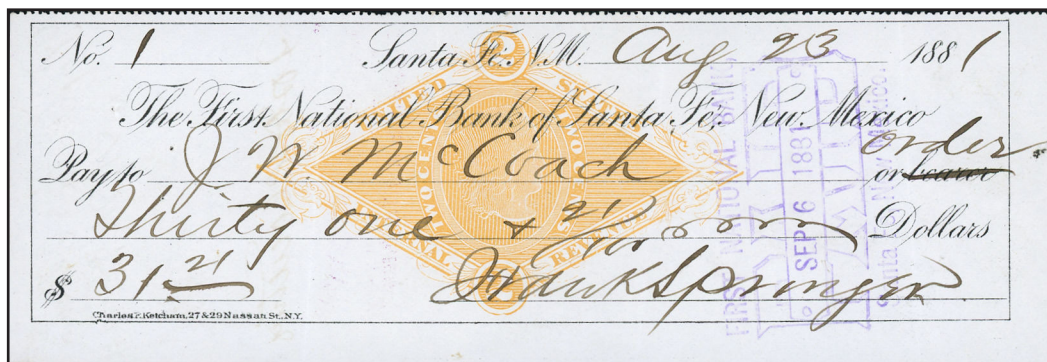 No. 1 Santa Fe, N.M. Aug 23 1881
The First National Bank of Santa Fe, New Mexico
Pay to J W. McCoach or bearer order
Thirty one & 21/100 Dollars
$ 31 21 Frank Springer
Charles F. Ketcham, 27 & 29 Nassau St., N.Y.
UNITED STATES
TWO CENTS
TWO CENTS
INTERNAL REVENUE
2
2
FIRST NATIONAL BANK
PAID
SEP 6 1881
Santa Fe, New Mexico